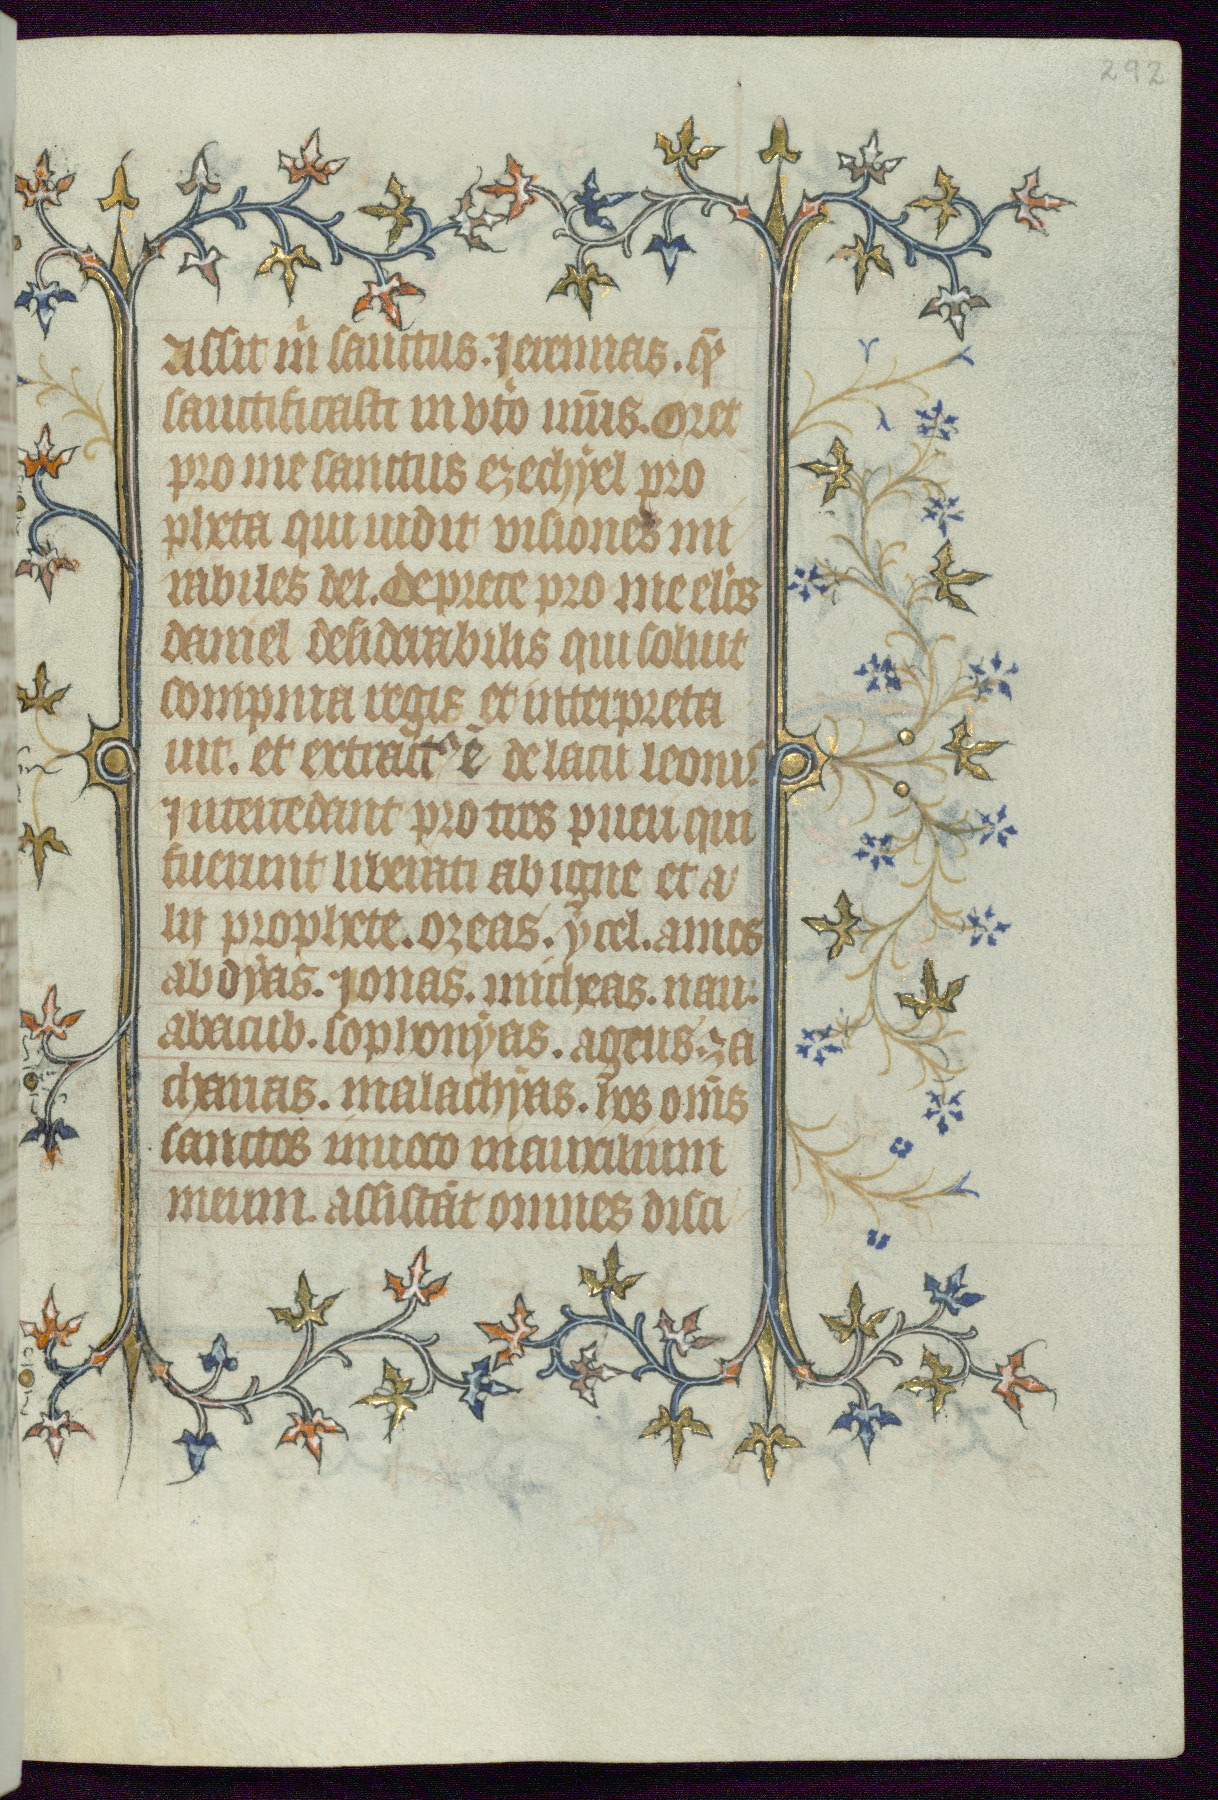 292
Assit m̄ sanctus. Jeremias. q̄
sanctificasti in vt̄o mr̄is. Oret
pro me sanctus ezechyel pro
pheta qui uidit visiones mi
rabiles dei. Deprece pro me elc̄s
daniel desiderabilis qui soluit
sompnia regis et interpreta
uit. et extract⁹ ē de lacu leonū.
Intercedant pro tres pueri qui
fuerunt liberati ab igne et a
lii prophete. ozeas. amos
abdyas. Jonas. micheas. nau.
abacub. sophonyas. ageus. za
charias. malachyas. hos om̄s
sanctos inuoco in auxilium
meum. assistāt omnes disci